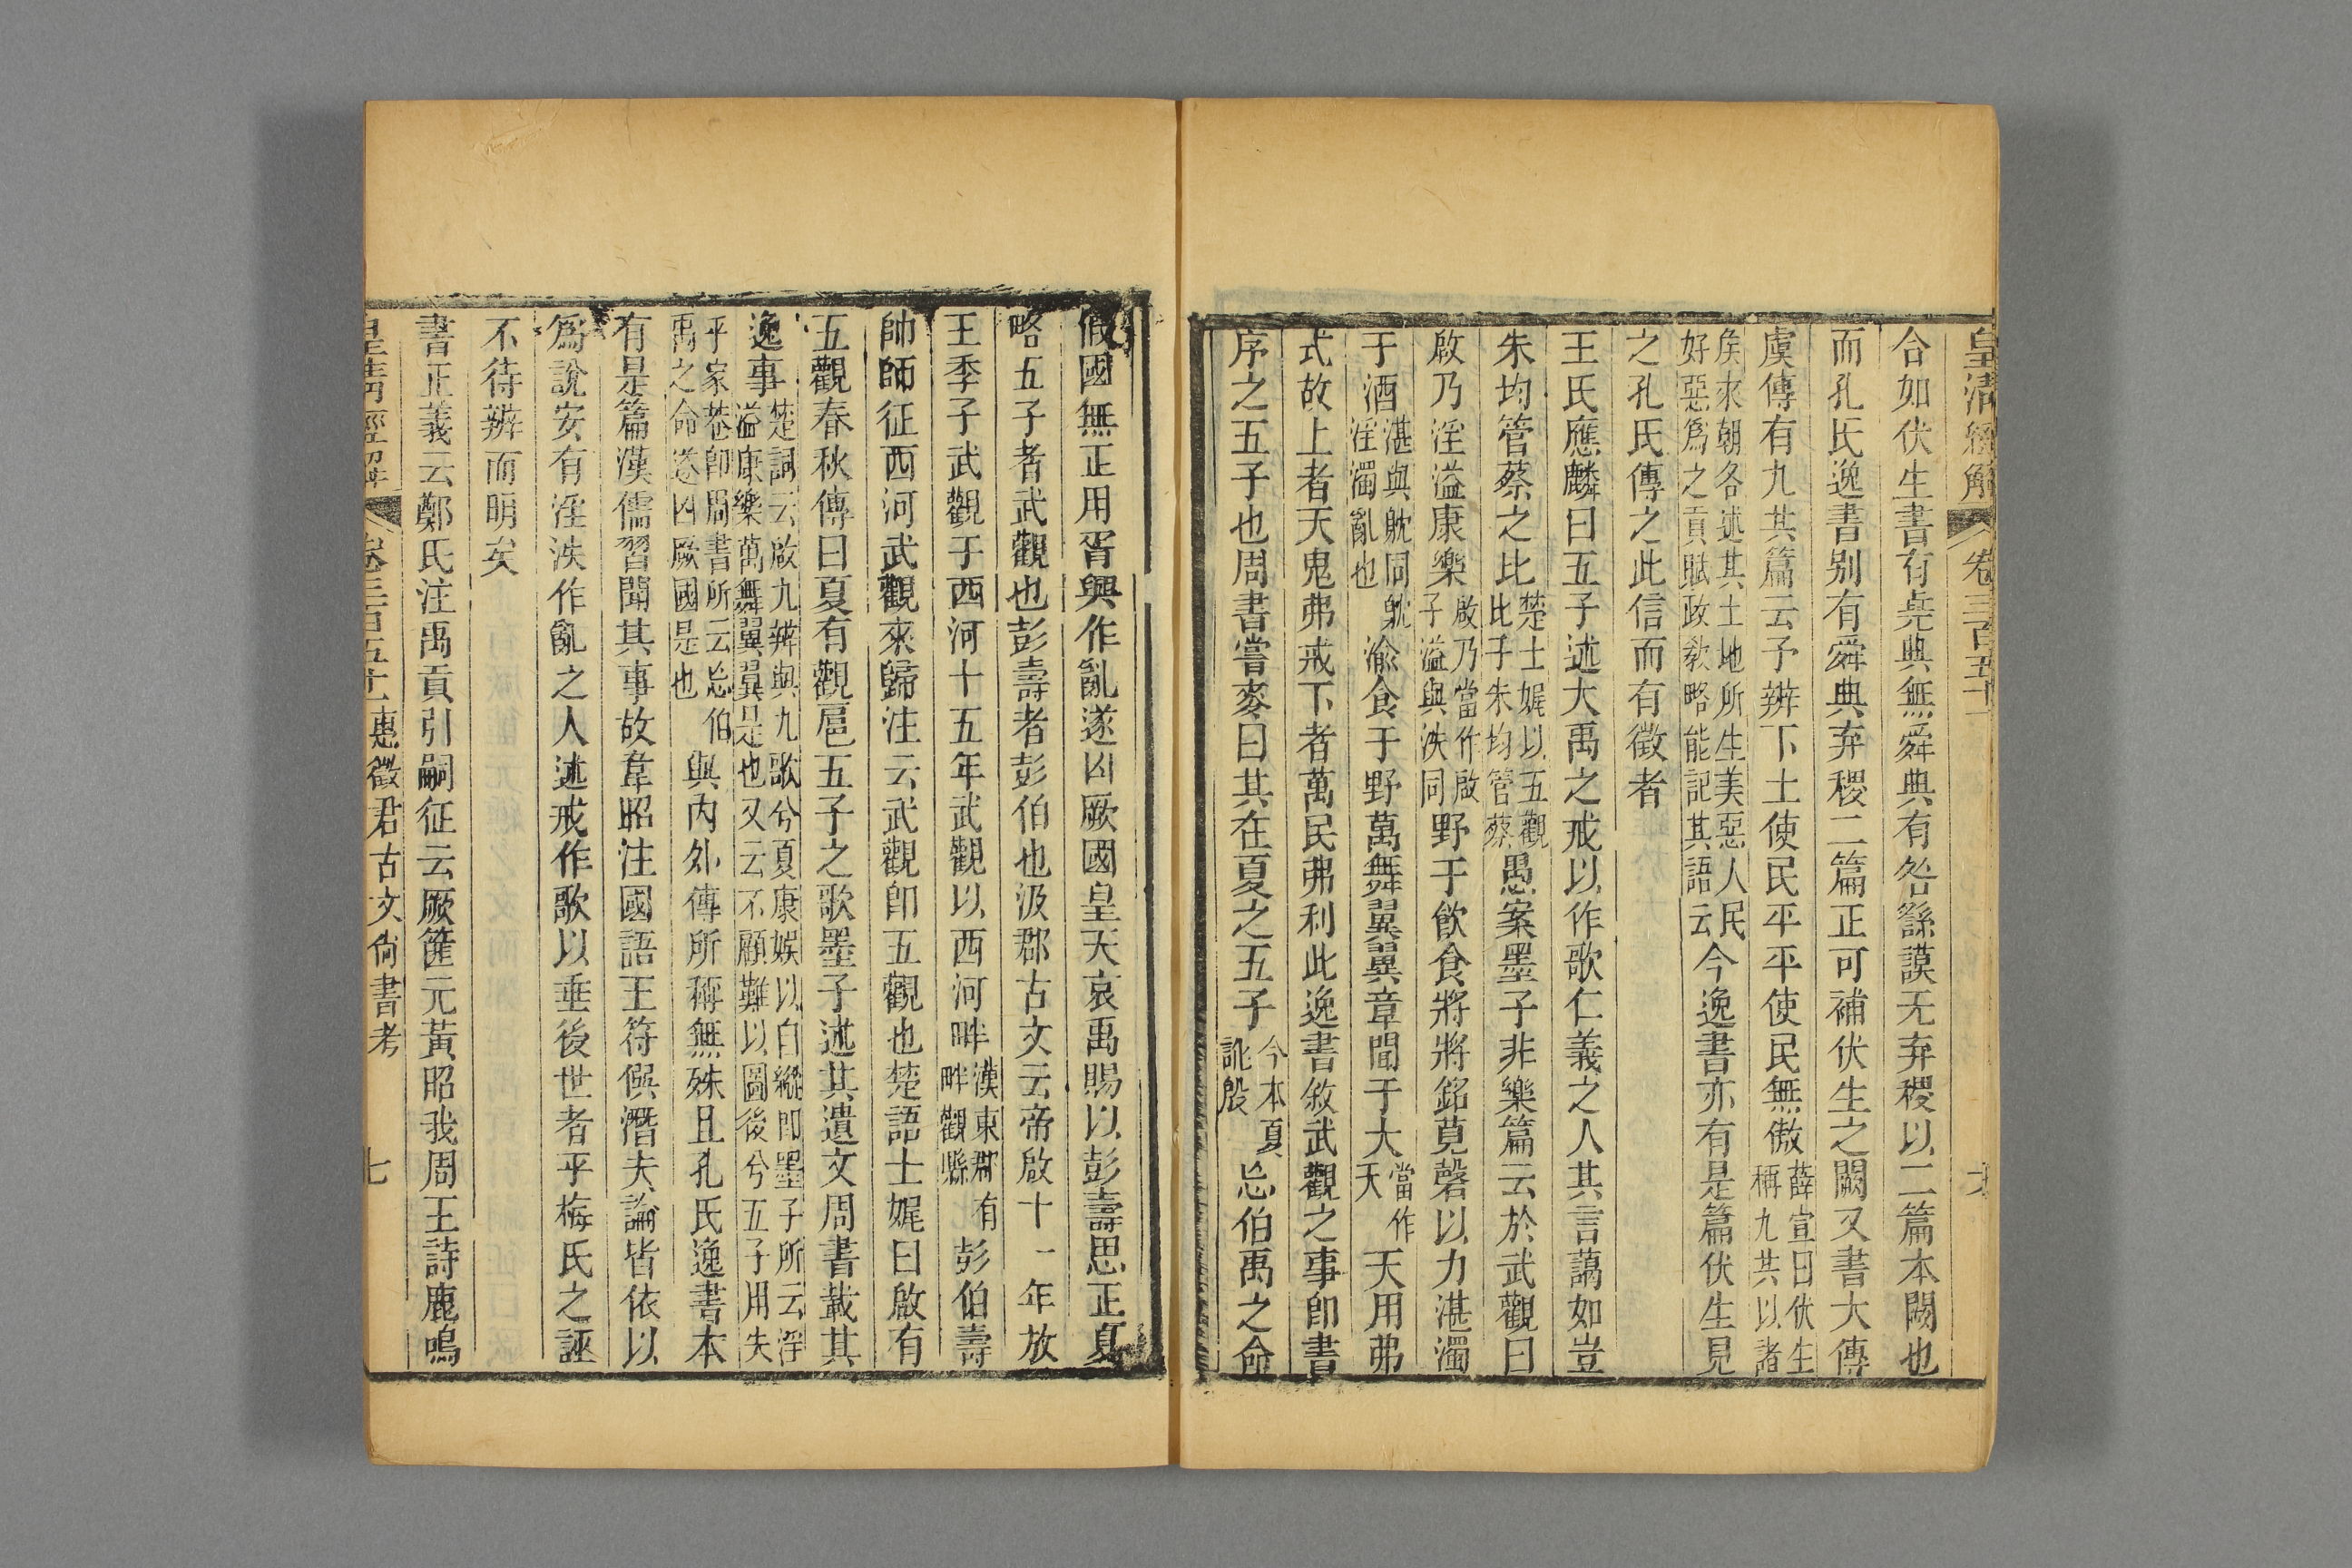 皇清經解 卷三百五十一
合如伏生書有堯典無舜典有咎繇謨无弃稷以二篇本闕也
而孔氏逸書别有舜典弃稷二篇正可補伏生之闕又書大傳
虞傳有九共篇云予辨下土使民平平使民無傲薛宣曰伏生稱九共以諸
矦來朝各述其土地所生美惡人民好惡爲之貢賦政敎略能記其語云今逸書亦有是篇伏生見
之孔氏傳之此信而有徵者
王氏應麟曰五子述大禹之戒以作歌仁義之人其言藹如豈
朱均管蔡之比楚士娓以五觀比于朱均管蔡愚案墨子非樂篇云於武觀曰
啟乃淫溢康樂啟乃當作啟子溢與泆同野于飲食將將銘莧磬以力湛濁
于酒湛與躭同淫濁亂也渝食于野萬舞翼翼章聞于大當作天天用弗
式故上者天鬼弗戒下者萬民弗利此逸書敘武觀之事卽書
序之五子也周書嘗麥曰其在夏之五子今本夏訛殷忘伯禹之命
假國無正用胥興作亂遂凶厥國皇天哀禹賜以彭壽思正夏
略五子者武觀也彭壽者彭伯也汲郡古文云帝啟十一年放
王季子武觀于西河十五年武觀以西河畔漢東郡有畔觀縣彭伯壽
帥師征西河武觀來歸注云武觀卽五觀也楚語士娓曰啟有
五觀春秋傳曰夏有觀扈五子之歌墨子述其遺文周書載其
逸事楚詞云啟九辨與九歌兮夏康娛以自縱卽墨子所云淫溢康樂萬舞翼翼是也又云不顧難以圖後兮五子用失
乎家巷卽周書所云忘伯禹之命遂凶厥國是也與內外傳所稱無殊且孔氏逸書本
有是篇漢儒習聞其事故韋昭注國語王符僎潛夫論皆依以
爲說安有淫泆作亂之人述戒作歌以垂後世者乎梅氏之誣
不待辨而明矣
書正義云鄭氏注禹貢引嗣征云厥篚元黃昭我周王詩鹿鳴
皇淸經解 卷三百五十一 惠徵君古文尙書考 七